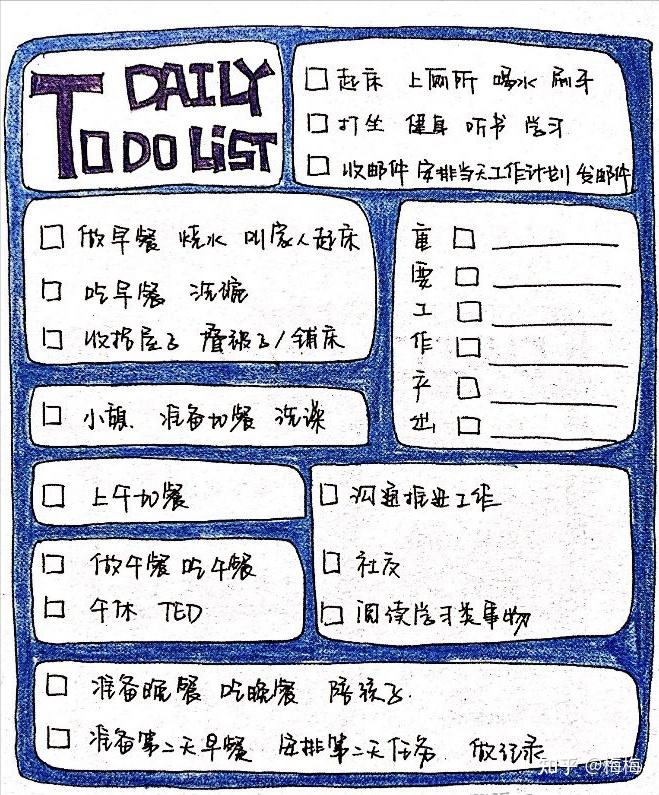 DAILY
TO DO LIST
起床 上厕所 喝水 刷牙
打坐 健身 听书 学习
收邮件 安排当天工作计划 发邮件
做早餐 烧水 叫家人起床
吃早餐 洗碗
收拾屋子 叠被子/铺床
重要工作产出
小颜 准备加餐 洗澡
上午加餐
沟通推进工作
社交
阅读学习类事物
做午餐 吃午餐
午休 TED
准备晚餐 吃晚餐 陪孩子.
准备第二天早餐 安排第二天任务 做记录
知乎 @梅梅